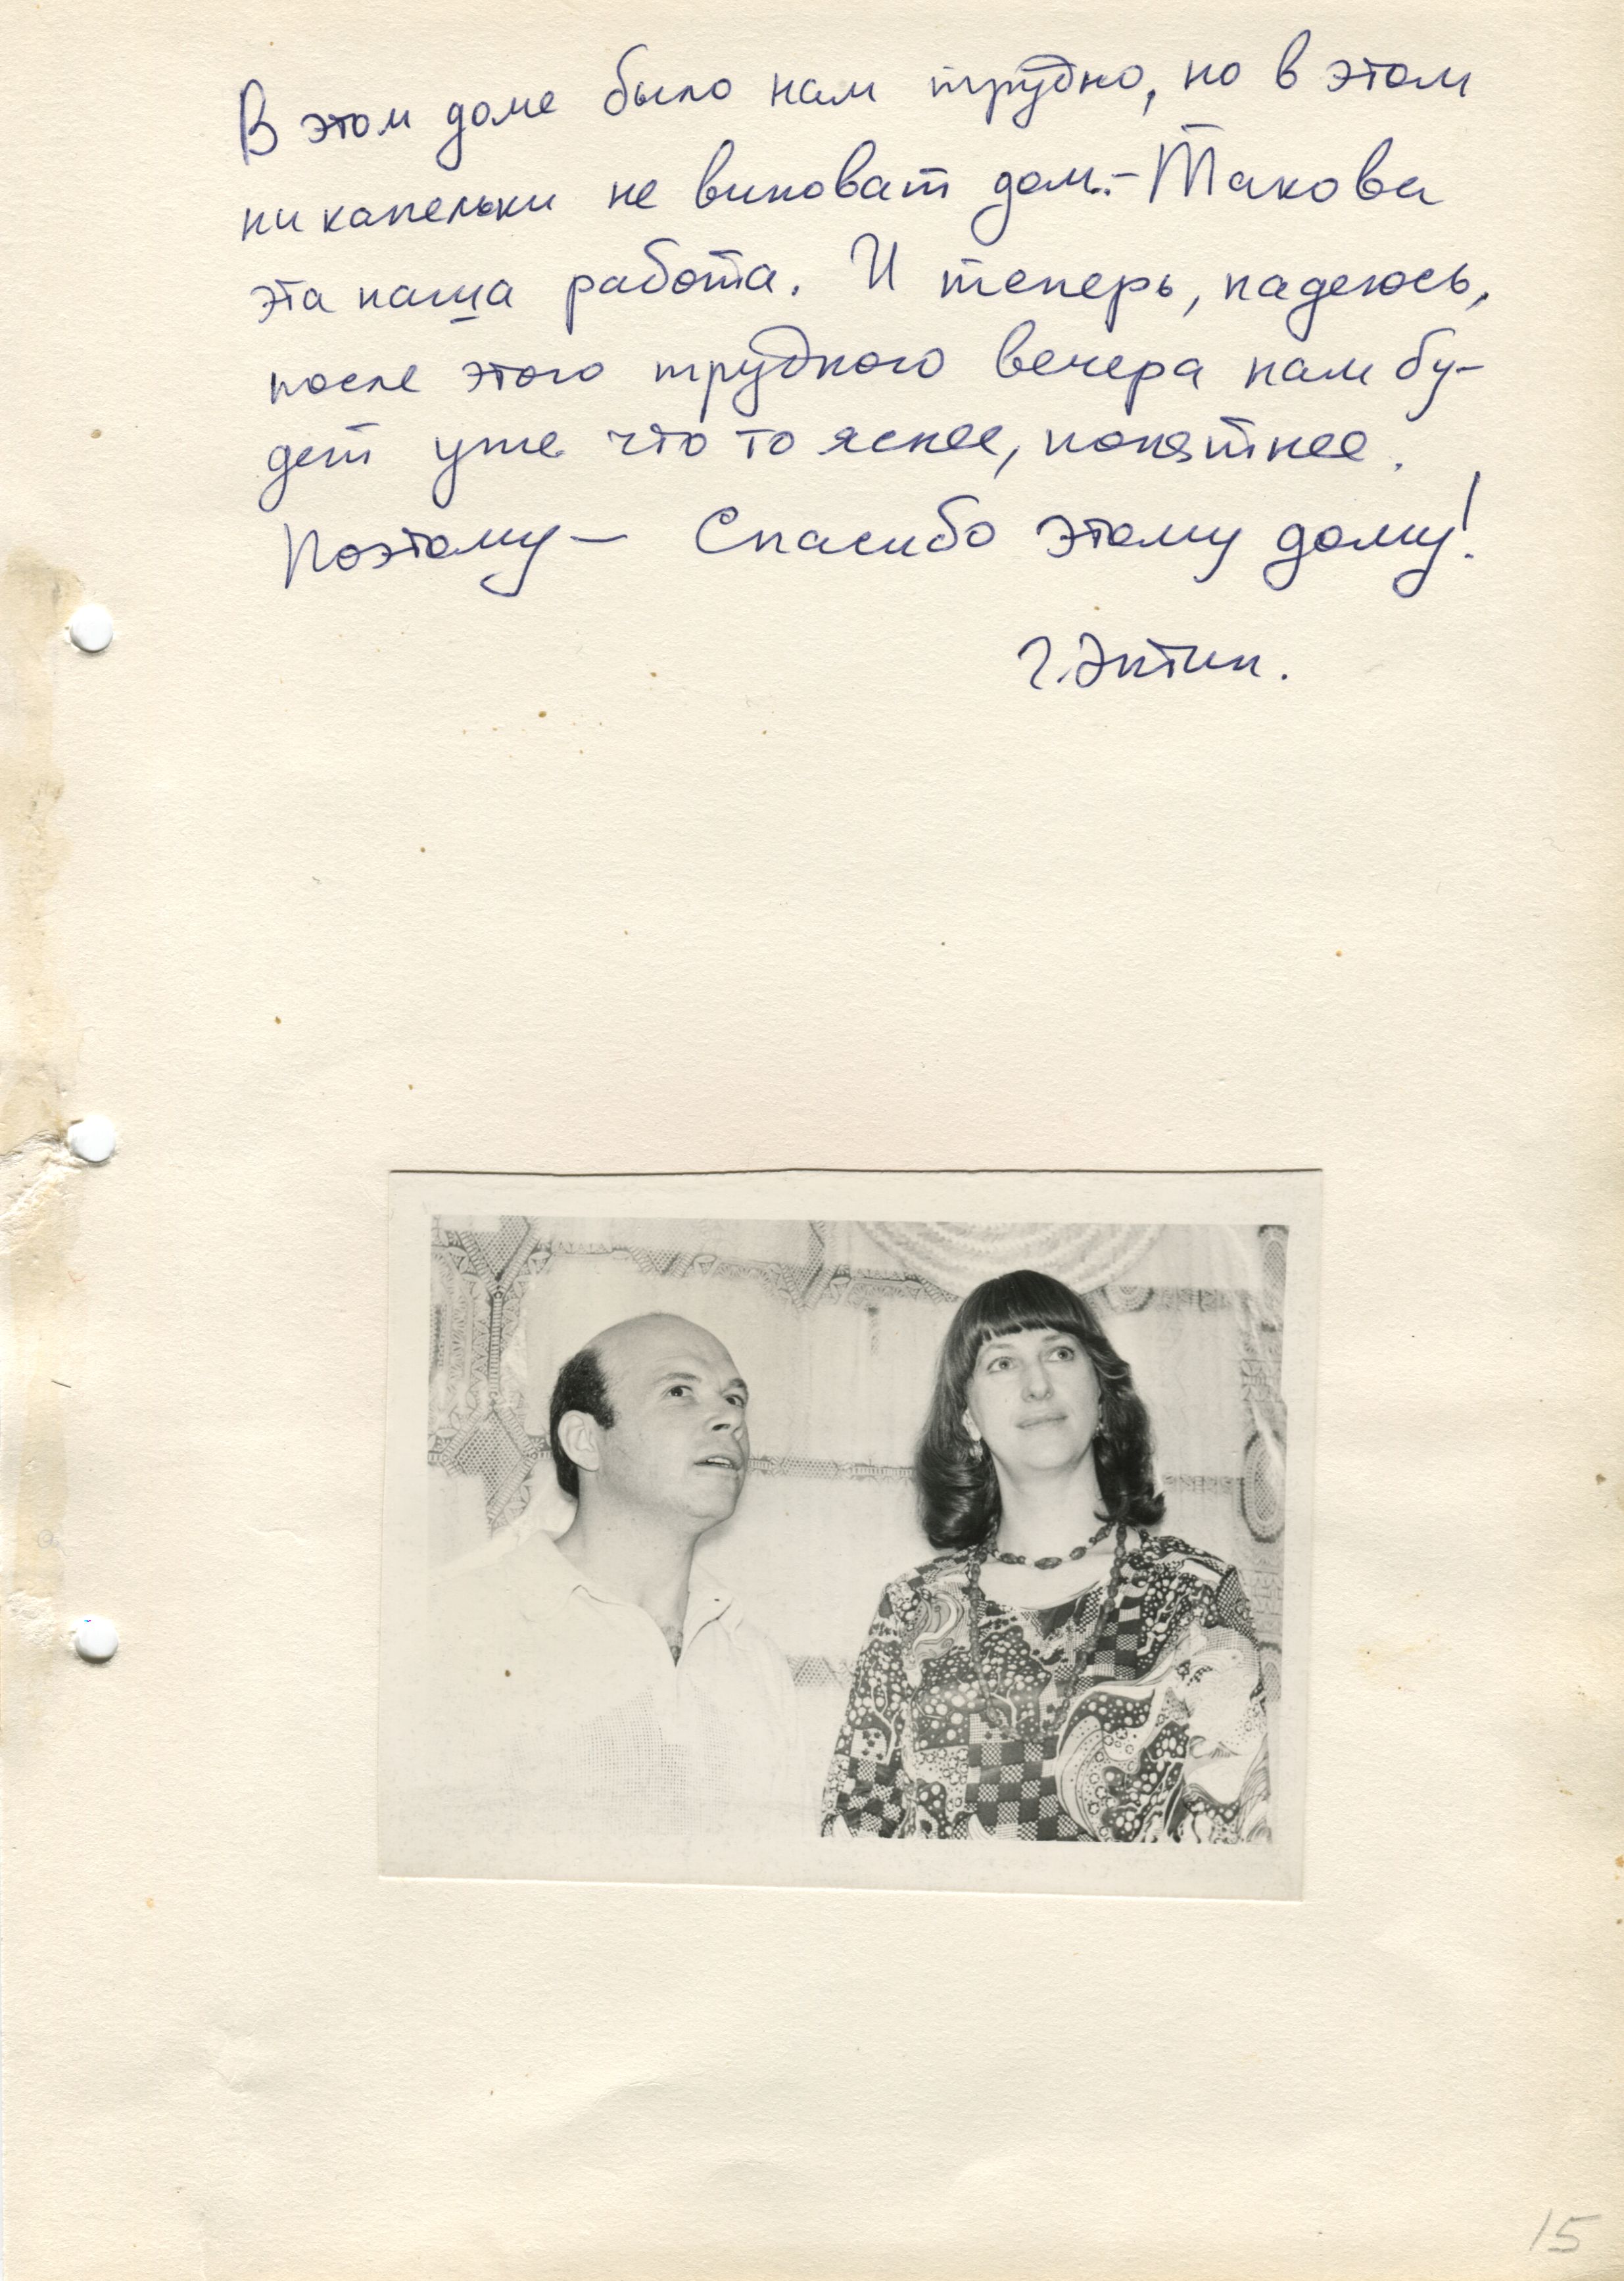 В этом доме было нам трудно, но в этом
ни капельки не виноват дом.- Такова
эта наша работа. И теперь, надеюсь,
после этого трудного вечера нам бу-
дет уже что то яснее, понятнее.
Поэтому — Спасибо этому дому!
Г. Энтин.
15